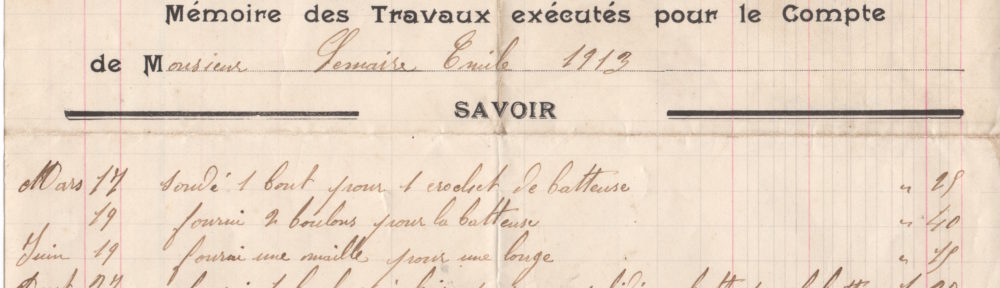 Mémoire des Travaux exécutés pour le Compte
de Monsieur Lemaire Emile 1913
SAVOIR
Mars 17 soudé 1 bout pour 1 crochet de batteuse " 25
19 fourni 2 boulons pour la batteuse " 40
Juin 19 fourni une maille pour une longe " 15
27